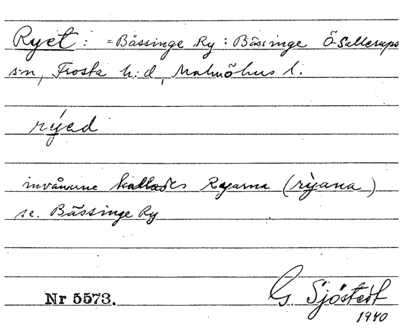 Ryet : = Bässinge Ry : Bäsinge Ö Sallerups
s:n, Frosta h:d, Malmöhus l.
rýed
invånarne kallades Ryarna (rýana)
se. Bässinge Ry
Nr 5573.
G. Sjöstedt
1940